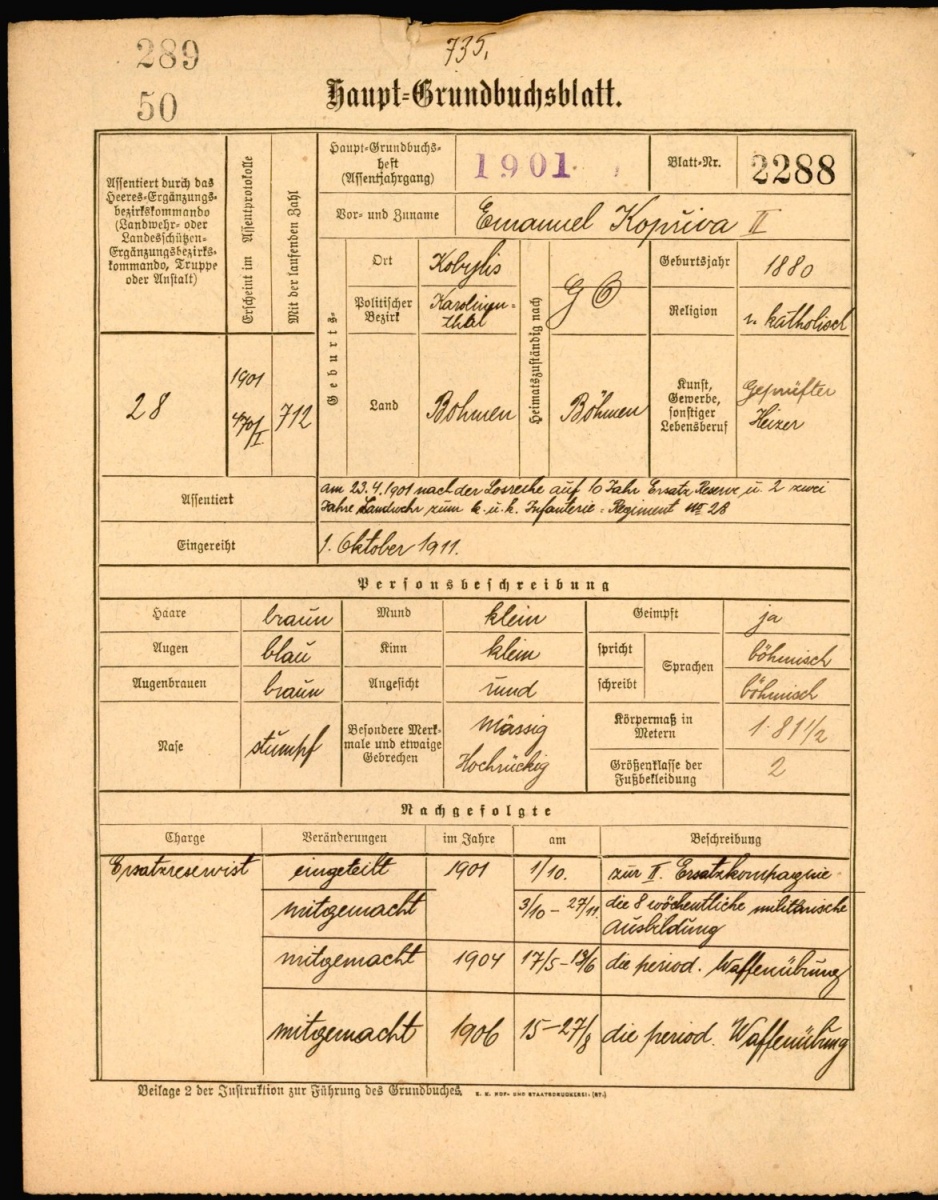 289
735,
50
Haupt-Grundbuchsblatt.
Assentiert durch das
Heeres-Ergänzungs-
bezirkskommando
(Landwehr- oder
Landesschützen-
Ergänzungsbezirks-
kommando, Truppe
oder Anstalt)
28
Erscheint im Assentprotokolle
1901
I
Mit der laufenden Zahl
712
Haupt-Grundbuchs-
heft
(Assentjahrgang)
1901
Blatt-Nr.
2288
Vor- und Zuname
Emanuel Kopřiva II
Geburts-
Ort
Kobylis
Politischer
Bezirk
Karolinen-
thal
Land
Böhmen
Heimatszuständig nach
Böhmen
Geburtsjahr
1880
Religion
r. katholisch
Kunst,
Gewerbe,
sonstiger
Lebensberuf
Geprüfter
Heizer
Assentiert
am 23.4.1901 nach der Losreihe auf 10 Jahr Ersatz Reserve u. 2 zwei
Jahre Landwehr zum k. u. k. Infanterie-Regiment No 28
Eingereiht
1. Oktober 1911.
Personsbeschreibung
Haare braun Mund klein Geimpft ja
Augen blau Kinn klein spricht Sprachen böhmisch
Augenbrauen braun Angesicht rund schreibt böhmisch
Nase stumpf
Besondere Merk-
male und etwaige
Gebrechen
Mässig
Hochrückig
Körpermaß in
Metern
1·81 1/2
Größenklasse der
Fußbekleidung
2
Nachgefolgte
Charge Veränderungen im Jahre am Beschreibung
Ersatzreservist eingeteilt 1901 1/10. zur II. Ersatzkompagnie
mitgemacht 3/10 - 27/11 die 8 wöchentliche militärische
Ausbildung
mitgemacht 1904 17/5 - 13/6 die period. Waffenübung
mitgemacht 1906 15 - 27/8 die period. Waffenübung
Beilage 2 der Instruktion zur Führung des Grundbuches.
K. K. HOF- UND STAATSDRUCKEREI.